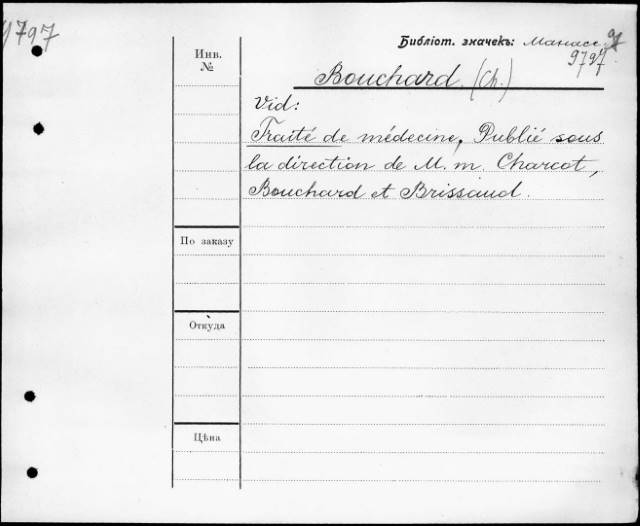 9797
Библіот. значекъ: Манасс.
9797
Инв.
№
Bouchard (Ch.)
Vid:
Traité de médecine, Publié sous
la direction de M. m. Charcot,
Bouchard et Brissaud.
По заказу
Откуда
Цѣна